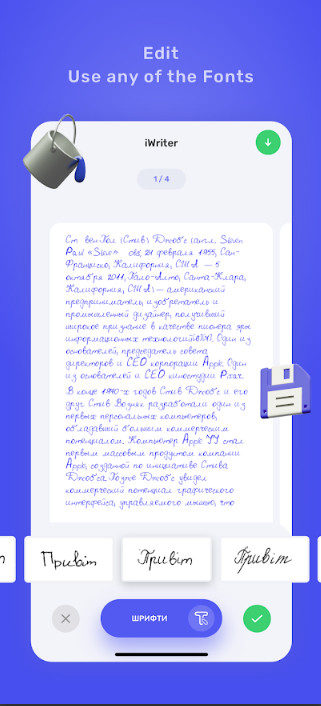 Edit
Use any of the Fonts
iWriter
1 / 4
Пол (Стив) Джобс (англ. Steven
Paul «Steve» 24 февраля 1955, Сан-
Франциско, Калифорния, США — 5
октября 2011, Пало-Алто, Санта-Клара,
Калифорния, США) — американский
предприниматель, изобретатель и
промышленный дизайнер, получивший
широкое признание в качестве пионера эры
информационных технологий Один из
основателей, председатель совета
директоров и CEO корпорации Apple. Один
из основателей и CEO киностудии Pixar.
В конце 1970-х годов Стив Джобс и его
друг Стив Возняк разработали один из
первых персональных компьютеров,
обладавший большим коммерческим
потенциалом. Компьютер Apple II стал
первым массовым продуктом компании
Apple, созданной по инициативе Стива
Джобса. Позже Джобс увидел
коммерческий потенциал графического
интерфейса, управляемого мышью, что
Привіт
Привіт
Привіт
ШРИФТИ
T